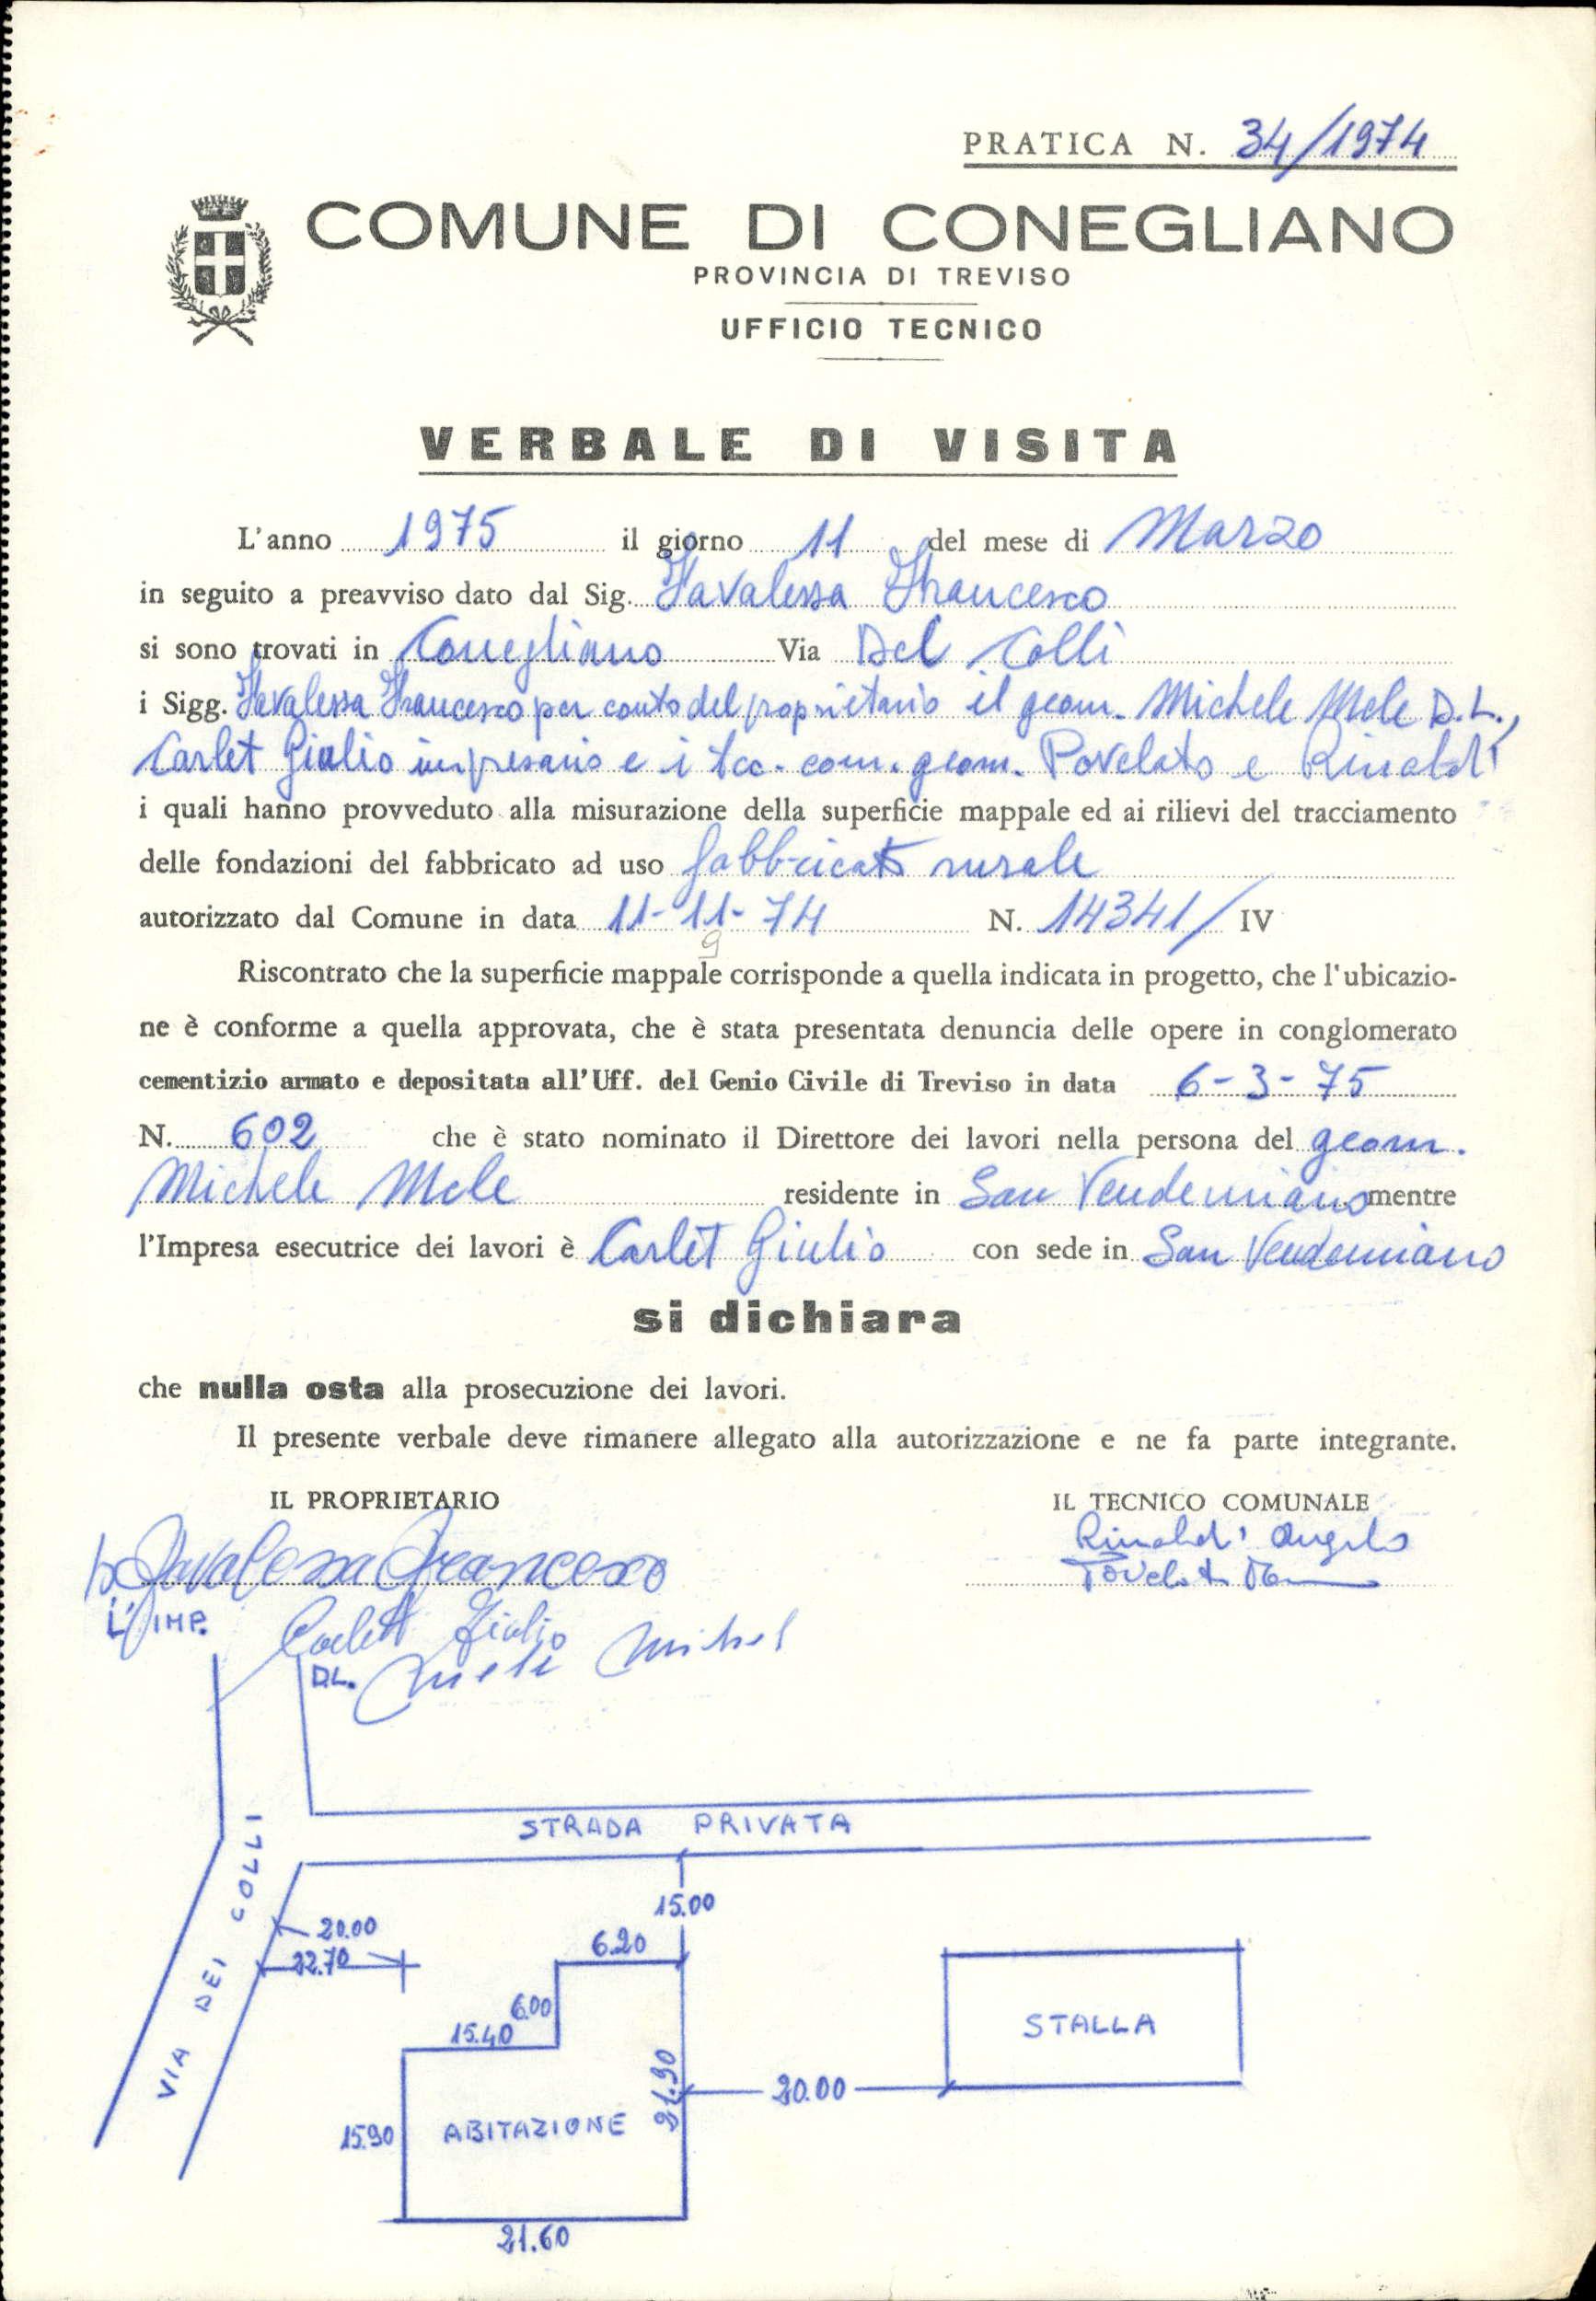 PRATICA N. 34/1974
COMUNE DI CONEGLIANO
PROVINCIA DI TREVISO
UFFICIO TECNICO
VERBALE DI VISITA
L'anno 1975 il giorno 11 del mese di Marzo
in seguito a preavviso dato dal Sig. Favalessa Francesco
si sono trovati in Conegliano Via Dei Colli
i Sigg. Favalessa Francesco per conto del proprietario il geom. Michele Mele D.L.,
Carlet Giulio impresario e i tec. com. geom. Povelato e Rinaldi
i quali hanno provveduto alla misurazione della superficie mappale ed ai rilievi del tracciamento
delle fondazioni del fabbricato ad uso fabbricato rurale
autorizzato dal Comune in data 11-11-74 N. 14341/ IV
Riscontrato che la superficie mappale corrisponde a quella indicata in progetto, che l'ubicazio-
ne è conforme a quella approvata, che è stata presentata denuncia delle opere in conglomerato
cementizio armato e depositata all'Uff. del Genio Civile di Treviso in data 6-3-75
N. 602 che è stato nominato il Direttore dei lavori nella persona del geom.
Michele Mele residente in San Vendemiano mentre
l'Impresa esecutrice dei lavori è Carlet Giulio con sede in San Vendemiano
si dichiara
che nulla osta alla prosecuzione dei lavori.
Il presente verbale deve rimanere allegato alla autorizzazione e ne fa parte integrante.
IL PROPRIETARIO
IL TECNICO COMUNALE
Favalessa Francesco
Rinaldi Angelo
Povelato
L'IMP. Carlet Giulio
D.L. Mele Michel
STRADA PRIVATA
VIA DEI COLLI
15.00
20.00
22.70
6.20
6.00
15.40
STALLA
21.90
20.00
15.90
ABITAZIONE
21.60